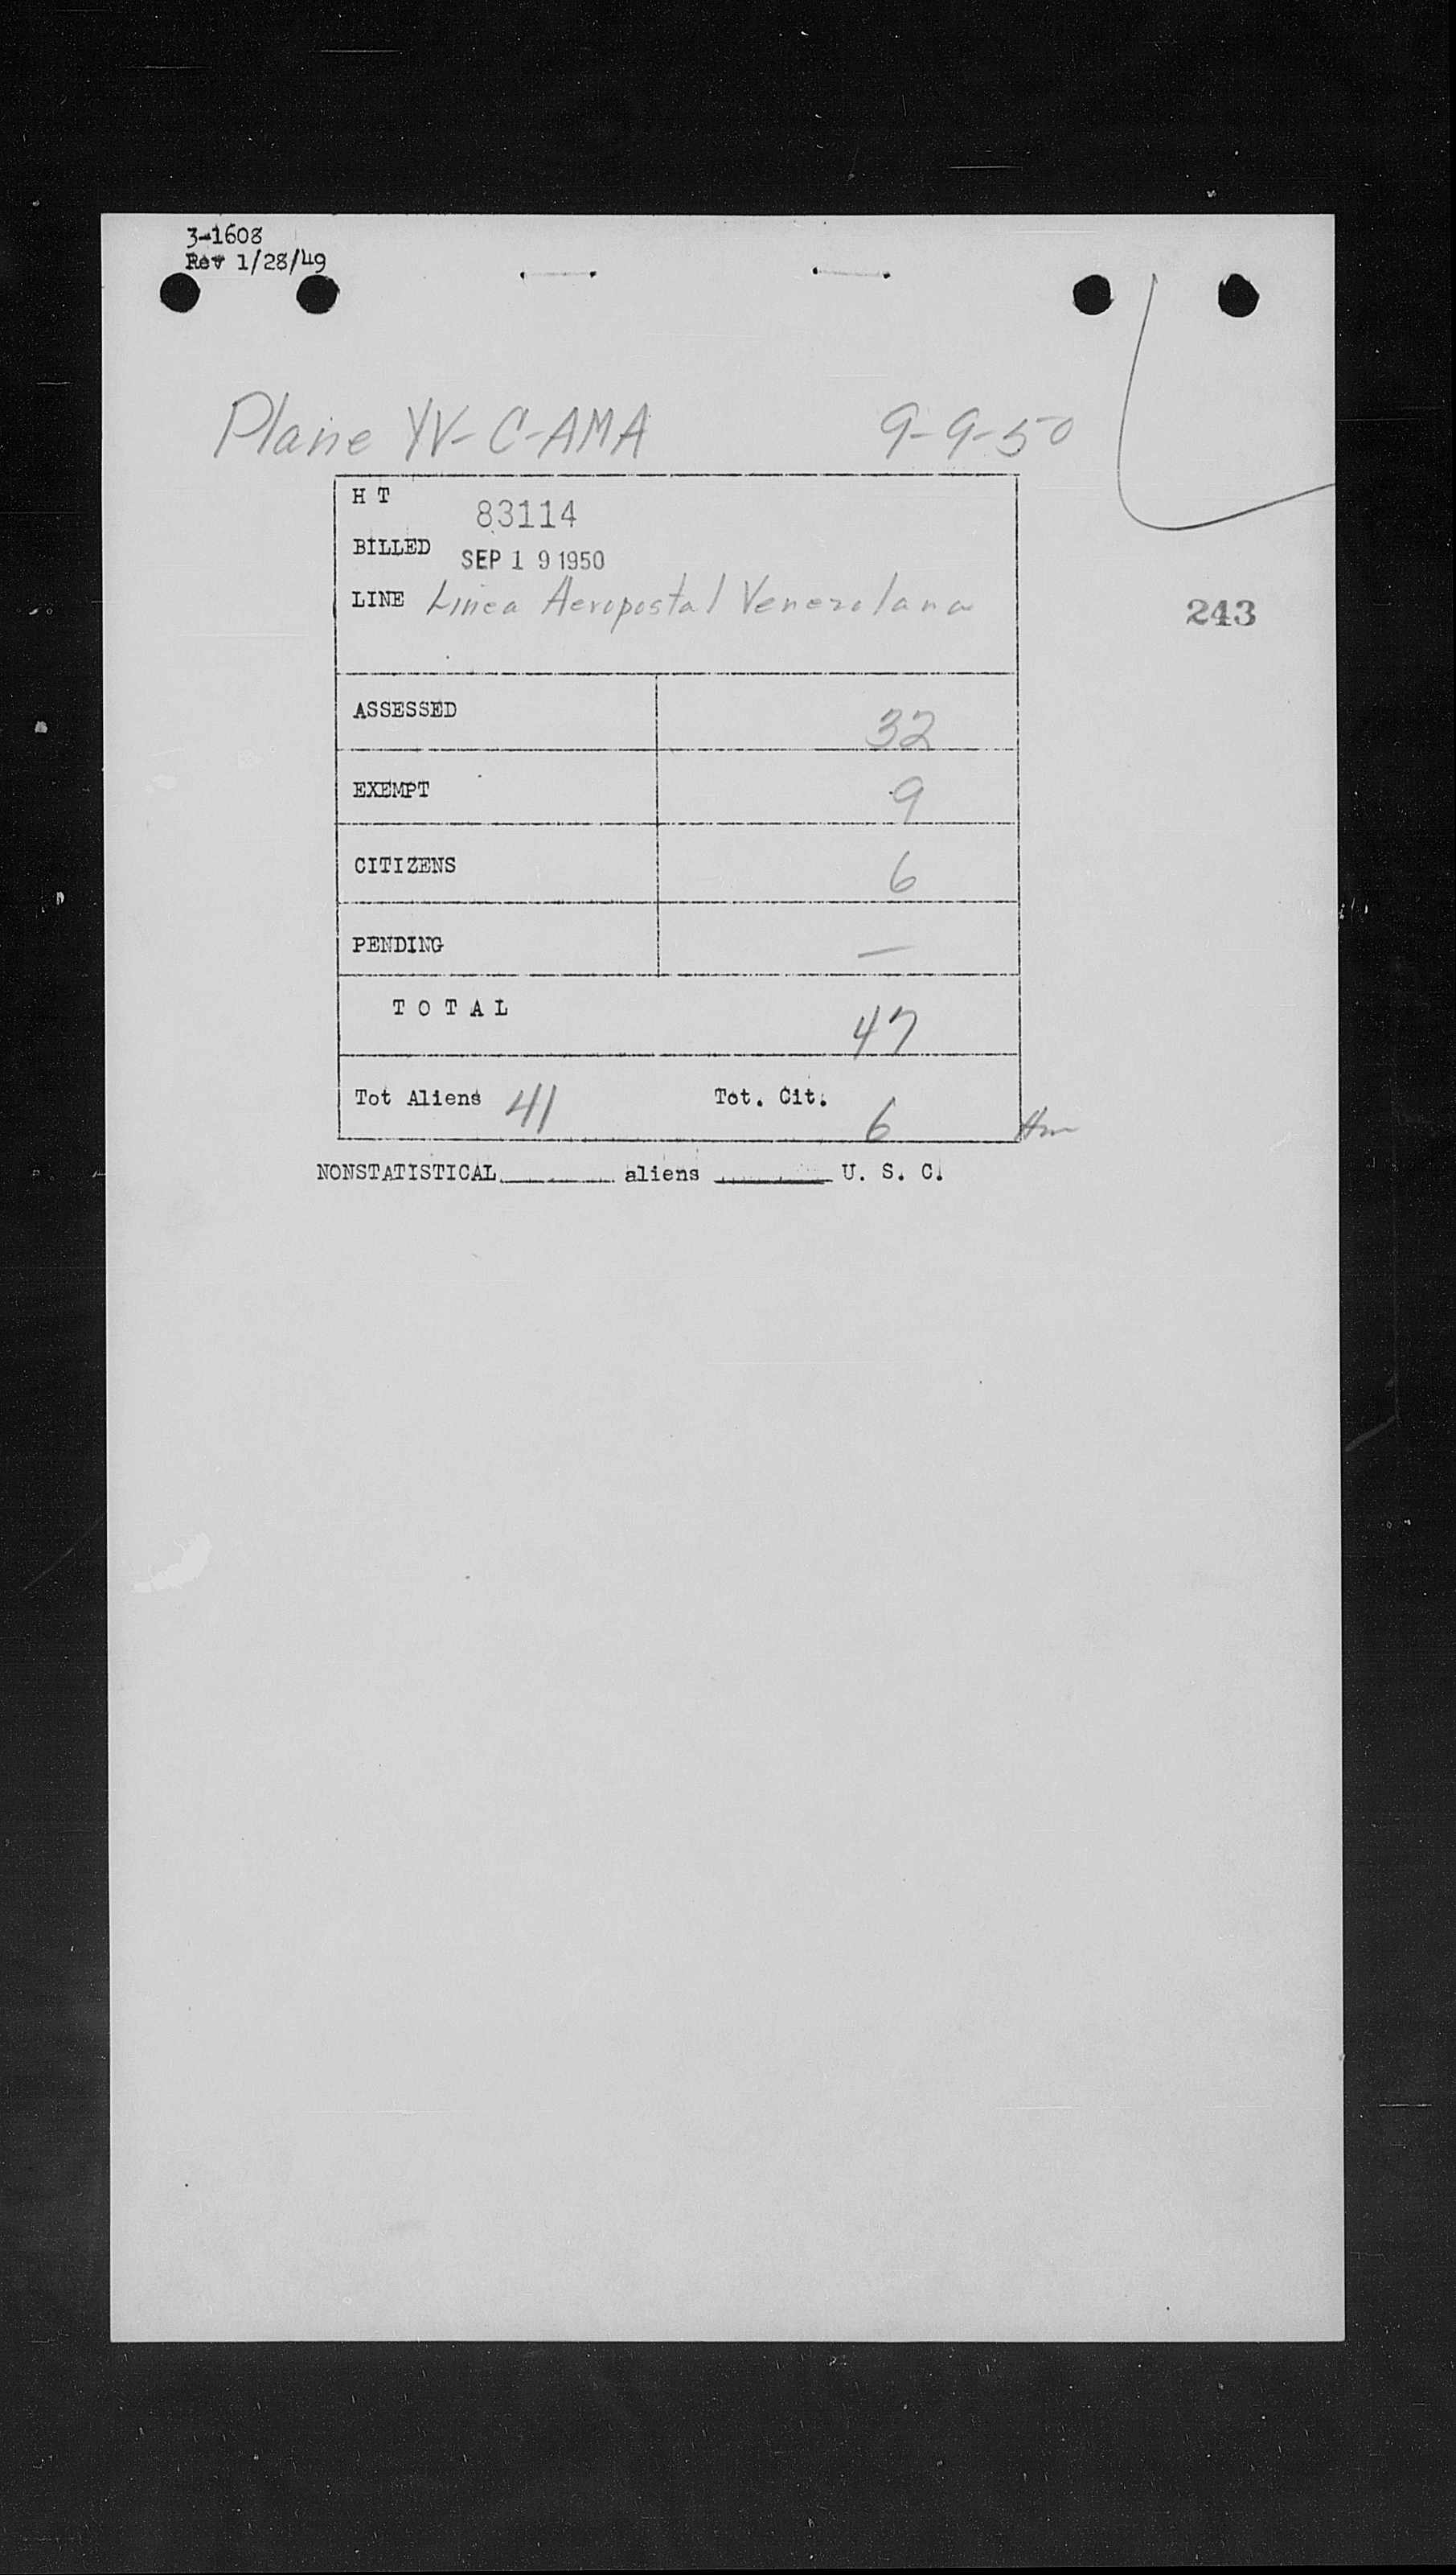 3-1608
Rev 1/28/49
Plane YV-C-AMA 9-9-50
H T 83114
BILLED SEP 19 1950
LINE Linea Aeropostal Venezolana
243
ASSESSED 32
EXEMPT 9
CITIZENS 6
PENDING —
TOTAL 47
Tot Aliens 41 Tot. Cit. 6
NONSTATISTICAL aliens U. S. C.